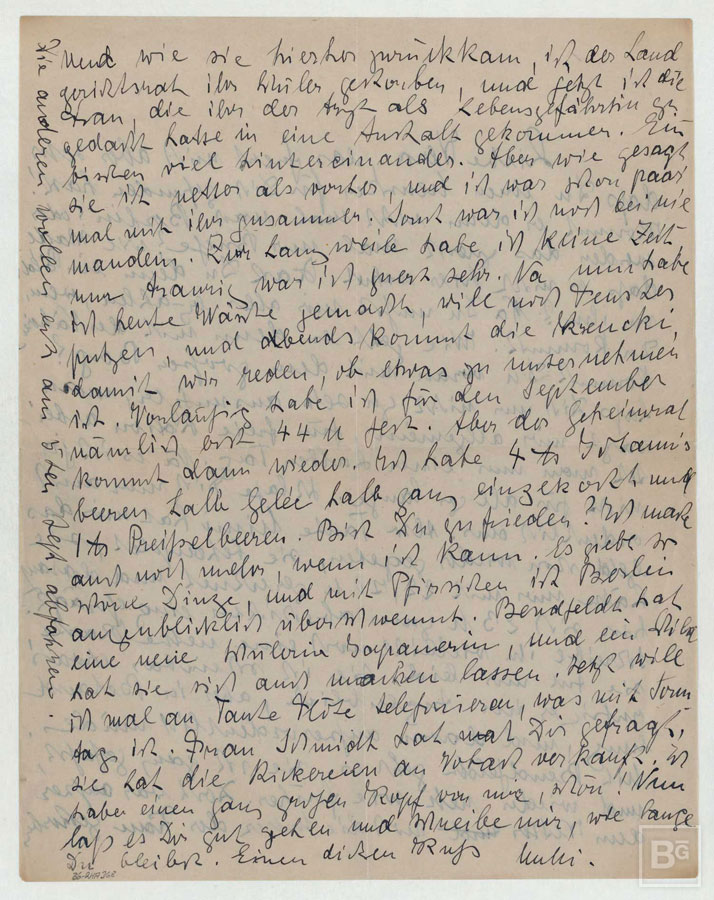 Und wie sie hierher zurückkam, ist der Land
gerichtsrat ihr Schüler gestorben, und jetzt ist die
Frau, die ihr der Arzt als Lebensgefährtin zu
gedacht hatte in eine Anstalt gekommen. Ein
bischen viel hintereinander. Aber wie gesagt
sie ist netter als vorher, und ich war schon paar
mal mit ihr zusammen. Sonst war ich noch bei nie
mandem. Zur Langweile habe ich keine Zeit,
nur traurig war ich zuerst sehr. Na nun habe
ich heute Wäsche gemacht, will noch Fenster
putzen, und abends kommt die Krencki,
damit wir reden, ob etwas zu unternehmen
ist. Vorläufig habe ich für den September
nämlich erst 44 M fest. Aber der Geheimrat
kommt dann wieder. Ich habe 4 ℔ Johannis
beeren halb Gelée halb ganz eingekocht und
1 ℔ Preißelbeeren. Bist Du zufrieden? Ich mache
auch noch mehr, wenn ich kann. Es giebt so
schöne Dinge, und mit Pfirsichen ist Berlin
augenblicklich überschwemmt. Bendfeldt hat
eine neue Schülerin Japanerin, und ein Bild
hat sie sich auch machen lassen. Jetzt will
ich mal an Tante telefonieren, was mit Sonn
tag ist. Frau Schmidt hat nach Dir gefragt,
sie hat die an verkauft. Er
haben einen ganz großen Kopf von mir, schön! Nun
laß es Dir gut gehen und schreibe mir, wie lange
Du bleibst. Einen dicken Kuß
Die anderen wollen erst am ten Sept. abfahren.
BG